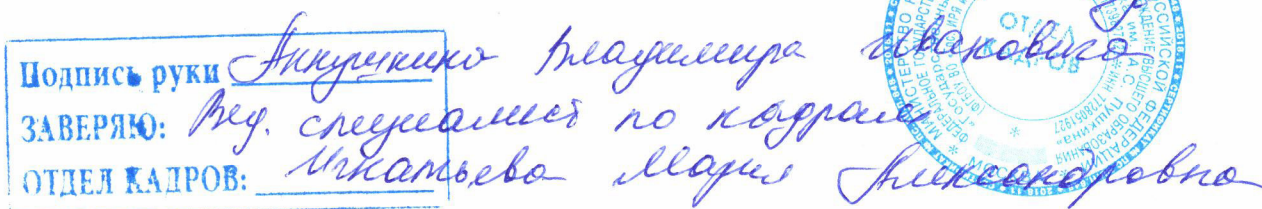 Подпись руки Аннушкина Владимира Ивановича
ЗАВЕРЯЮ: Вед. специалист по кадрам
ОТДЕЛ КАДРОВ: Игнатьева Мария Александровна
ОТДЕЛ
КАДРОВ